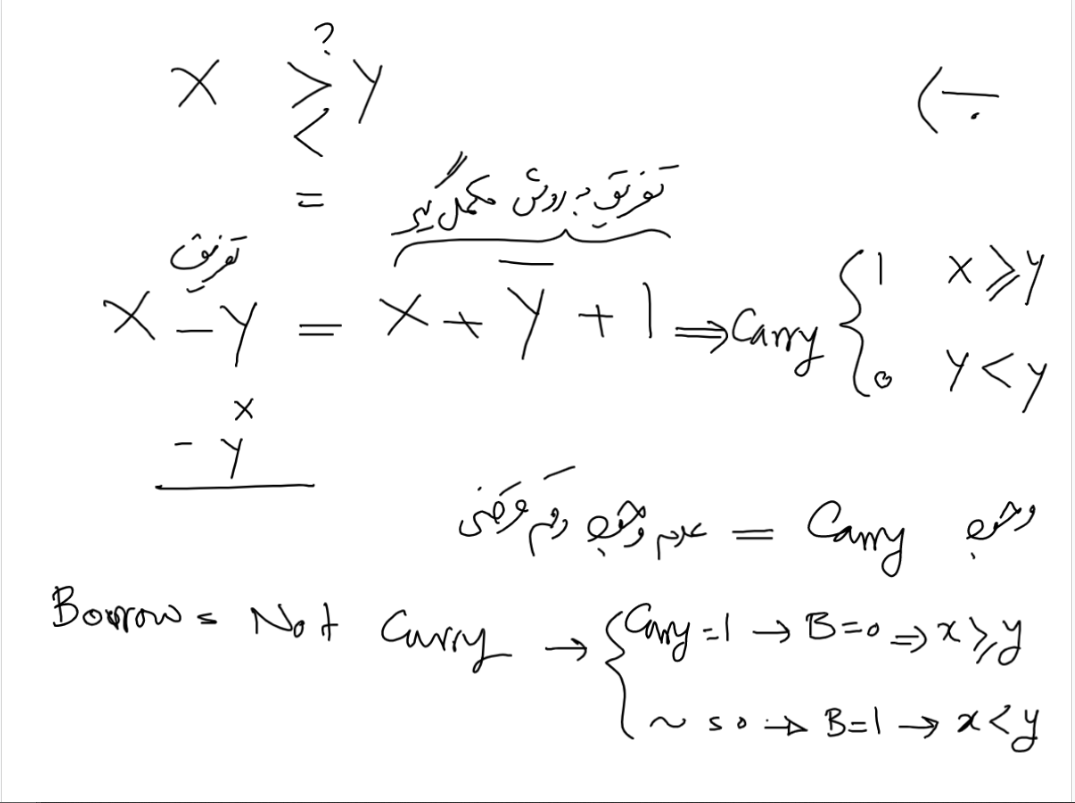 ۱۰)
?
X > Y
<
=
تفریق به روش مکمل گیری
تفریق
X − Y = X + Y̅ + 1 ⇒ Carry { 1 x ⩾ y
0 y < y
x
− y
وجود Carry = عدم وجود رقم قرضی
Borrow = Not Carry → { Carry = 1 → B = 0 ⇒ x ⩾ y
~ = 0 → B = 1 → x < y